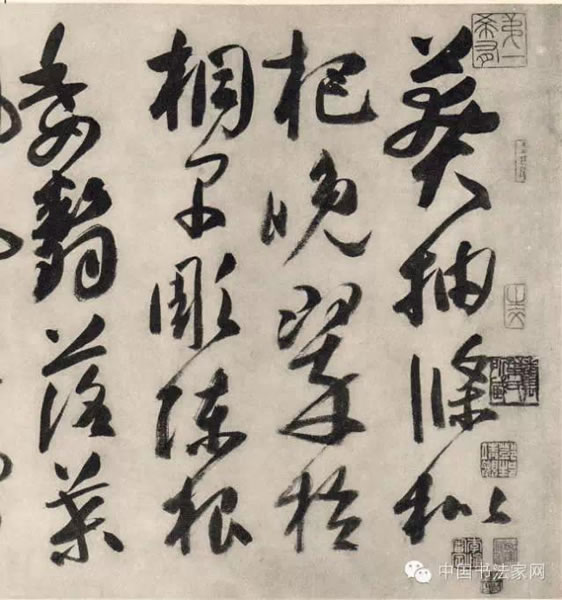 莽抽條枇
杷晚翠梧
桐早彫陳根
委翳落葉
第一希有
中国书法家网